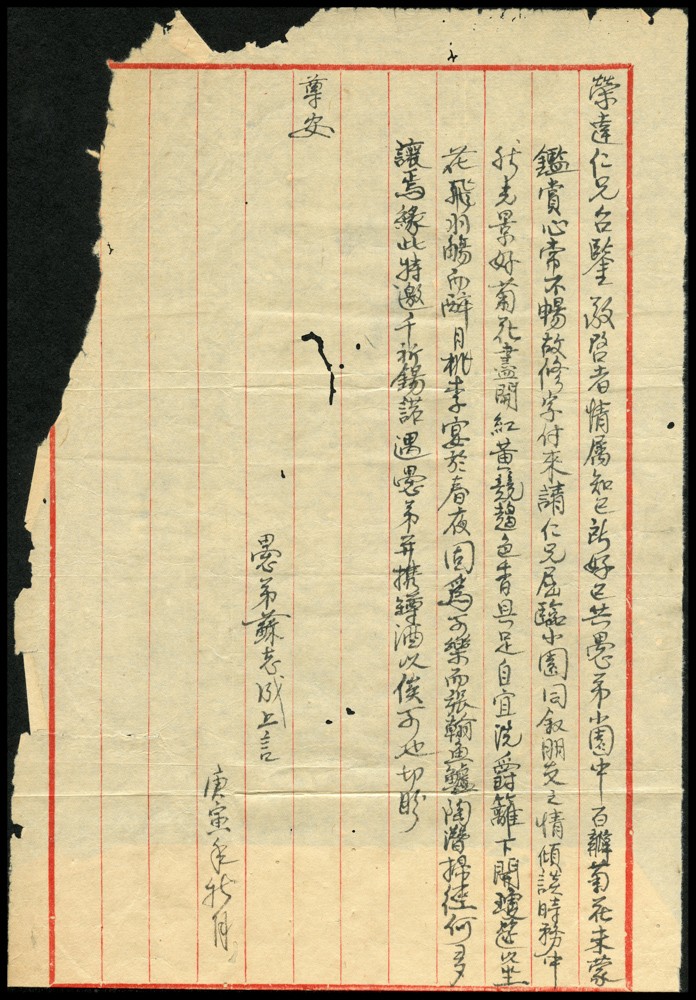 榮達仁兄台鑒敬啓者情属知己所好已共愚弟小園中百辦菊花未蒙
鑑賞心常不暢故修字付來請仁兄屈臨小園同敘朋友之情傾談時務中
秋光景好菊花盡開紅黃競趨色香具足自宜洗爵籬下開瓊筵以坐
花飛羽觴而醉月桃李宴於春夜固爲可樂而張翰魚鱸陶潛掃徑何多
讓焉緣此特邀千祈錫諾遇愚弟并攜鐏酒以俟可也切盼
尊安
愚弟蘇志成上言
庚寅年秋月